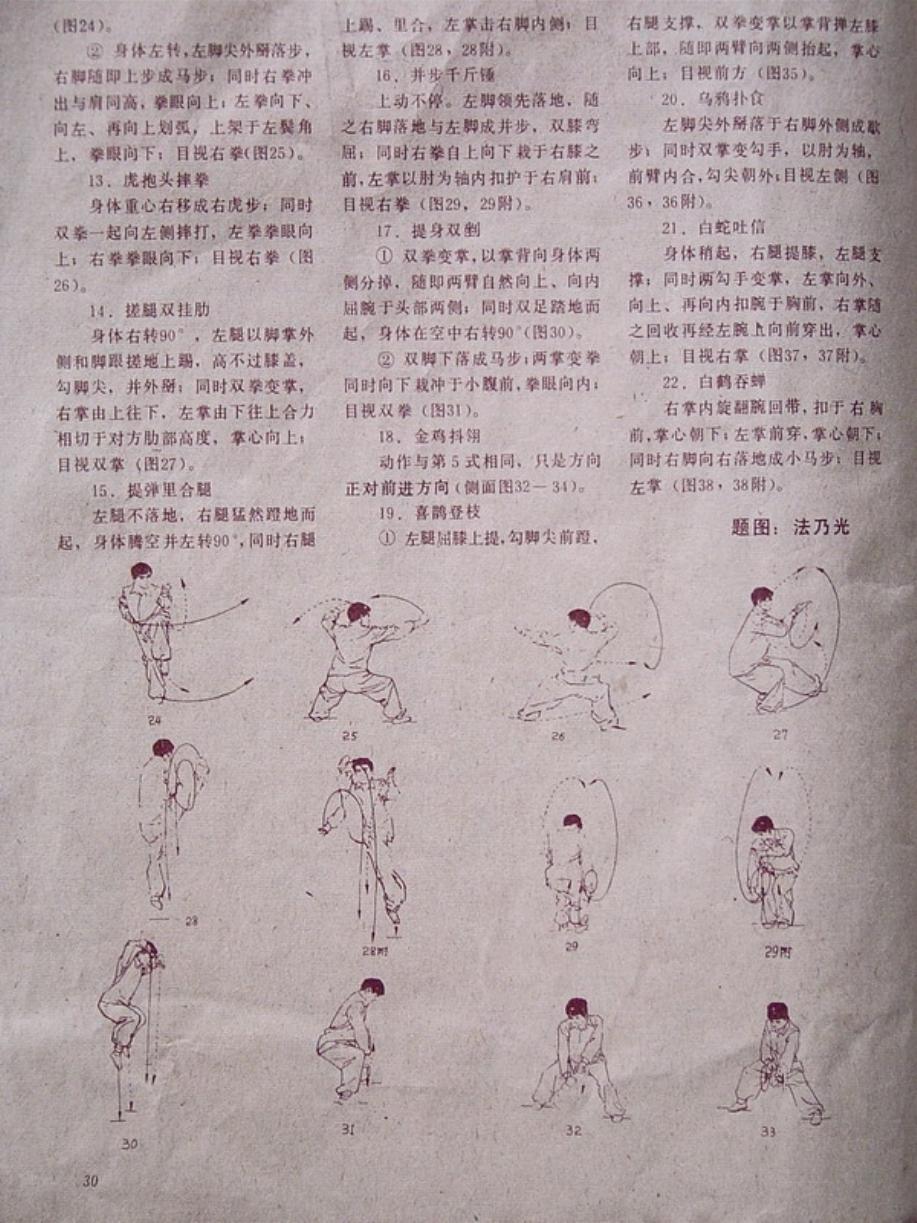 (图24)。
② 身体左转,左脚尖外掰落步,
右脚随即上步成马步；同时右拳冲
出与肩同高,拳眼向上；左拳向下、
向左、再向上划弧，上架于左鬓角
上，拳眼向下；目视右拳(图25)。
13．虎抱头摔拳
身体重心右移成右虎步；同时
双拳一起向左侧摔打，左拳拳眼向
上；右拳拳眼向下；目视右拳（图
26)。
14．搓腿双挂肋
身体右转90°，左腿以脚掌外
侧和脚跟搓地上踢，高不过膝盖，
勾脚尖，并外掰；同时双拳变掌，
右掌由上往下，左掌由下往上合力
相切于对方肋部高度，掌心向上；
目视双掌（图27)。
15．提弹里合腿
左腿不落地，右腿猛然蹬地而
起，身体腾空并左转90°,同时右腿
上踢、里合，左掌击右脚内侧；目
视左掌（图28，28附)。
16．并步千斤锤
上动不停。左脚领先落地，随
之右脚落地与左脚成并步，双膝弯
屈；同时右拳自上向下栽于右膝之
前,左掌以肘为轴内扣护于右肩前；
目视右拳（图29，29附)。
17．提身双剉
① 双拳变掌,以掌背向身体两
侧分掉，随即两臂自然向上、向内
屈腕于头部两侧；同时双足踏地而
起，身体在空中右转90°(图30)。
② 双脚下落成马步；两掌变拳
同时向下栽冲于小腹前,拳眼向内；
目视双拳（图31)。
18．金鸡抖翎
动作与第5式相同，只是方向
正对前进方向(侧面图32—34)。
19．喜鹊登枝
① 左腿屈膝上提,勾脚尖前蹬，
右腿支撑，双拳变掌以掌背掸左膝
上部，随即两臂向两侧抬起，掌心
向上；目视前方（图35)。
20．乌鸦扑食
左脚尖外掰落于右脚外侧成歇
步；同时双掌变勾手，以肘为轴，
前臂内合,勾尖朝外；目视左侧（图
36，36附)。
21．白蛇吐信
身体稍起，右腿提膝，左腿支
撑；同时两勾手变掌，左掌向外、
向上、再向内扣腕于胸前，右掌随
之回收再经左腕上向前穿出，掌心
朝上；目视右掌（图37，37附)。
22．白鹤吞蝉
右掌内旋翻腕回带，扣于右胸
前,掌心朝下；左掌前穿,掌心朝下；
同时右脚向右落地成小马步；目视
左掌（图38，38附)。
题图：法乃光
24
25
26
27
28
28附
29
29附
30
31
32
33
30